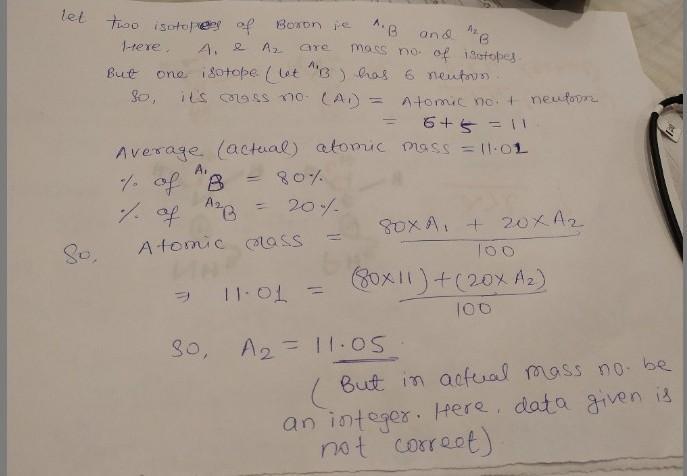 let two isotopes of Boron i.e ᴬ¹B and ᴬ²B
Here, A₁ & A₂ are mass no. of isotopes.
But one isotope (let ᴬ¹B) has 6 neutron.
So, it's mass no. (A₁) = Atomic no. + neutron
= 6+5 = 11
Average (actual) atomic mass = 11.01
% of ᴬ¹B = 80%
% of ᴬ²B = 20%
So, Atomic mass = 80×A₁ + 20×A₂ / 100
⇒ 11.01 = (80×11)+(20×A₂) / 100
So, A₂ = 11.05
(But in actual mass no. be
an integer. Here, data given is
not correct)